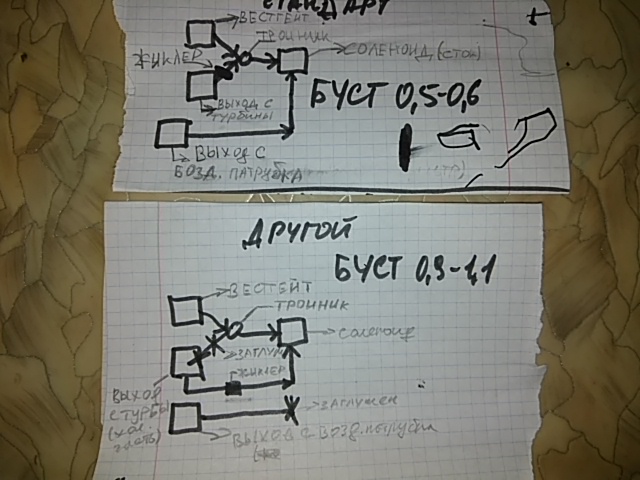 СТАНДАРТ
ВЕСТГЕЙТ
ТРОЙНИК
ЖИКЛЕР
СОЛЕНОИД (СТОК)
ВЫХОД С
ТУРБИНЫ
БУСТ 0,5-0,6
ВЫХОД С
ВОЗД. ПАТРУБКА
ДРУГОЙ
БУСТ 0,9-1,1
ВЕСТГЕЙТ
ТРОЙНИК
СОЛЕНОИД
ЗАГЛУШ
ЖИКЛЕР
ВЫХОД
С ТУРБЫ
(ХОЛ.
ЧАСТЬ)
ЗАГЛУШЕН
ВЫХОД С ВОЗД. ПАТРУБКА